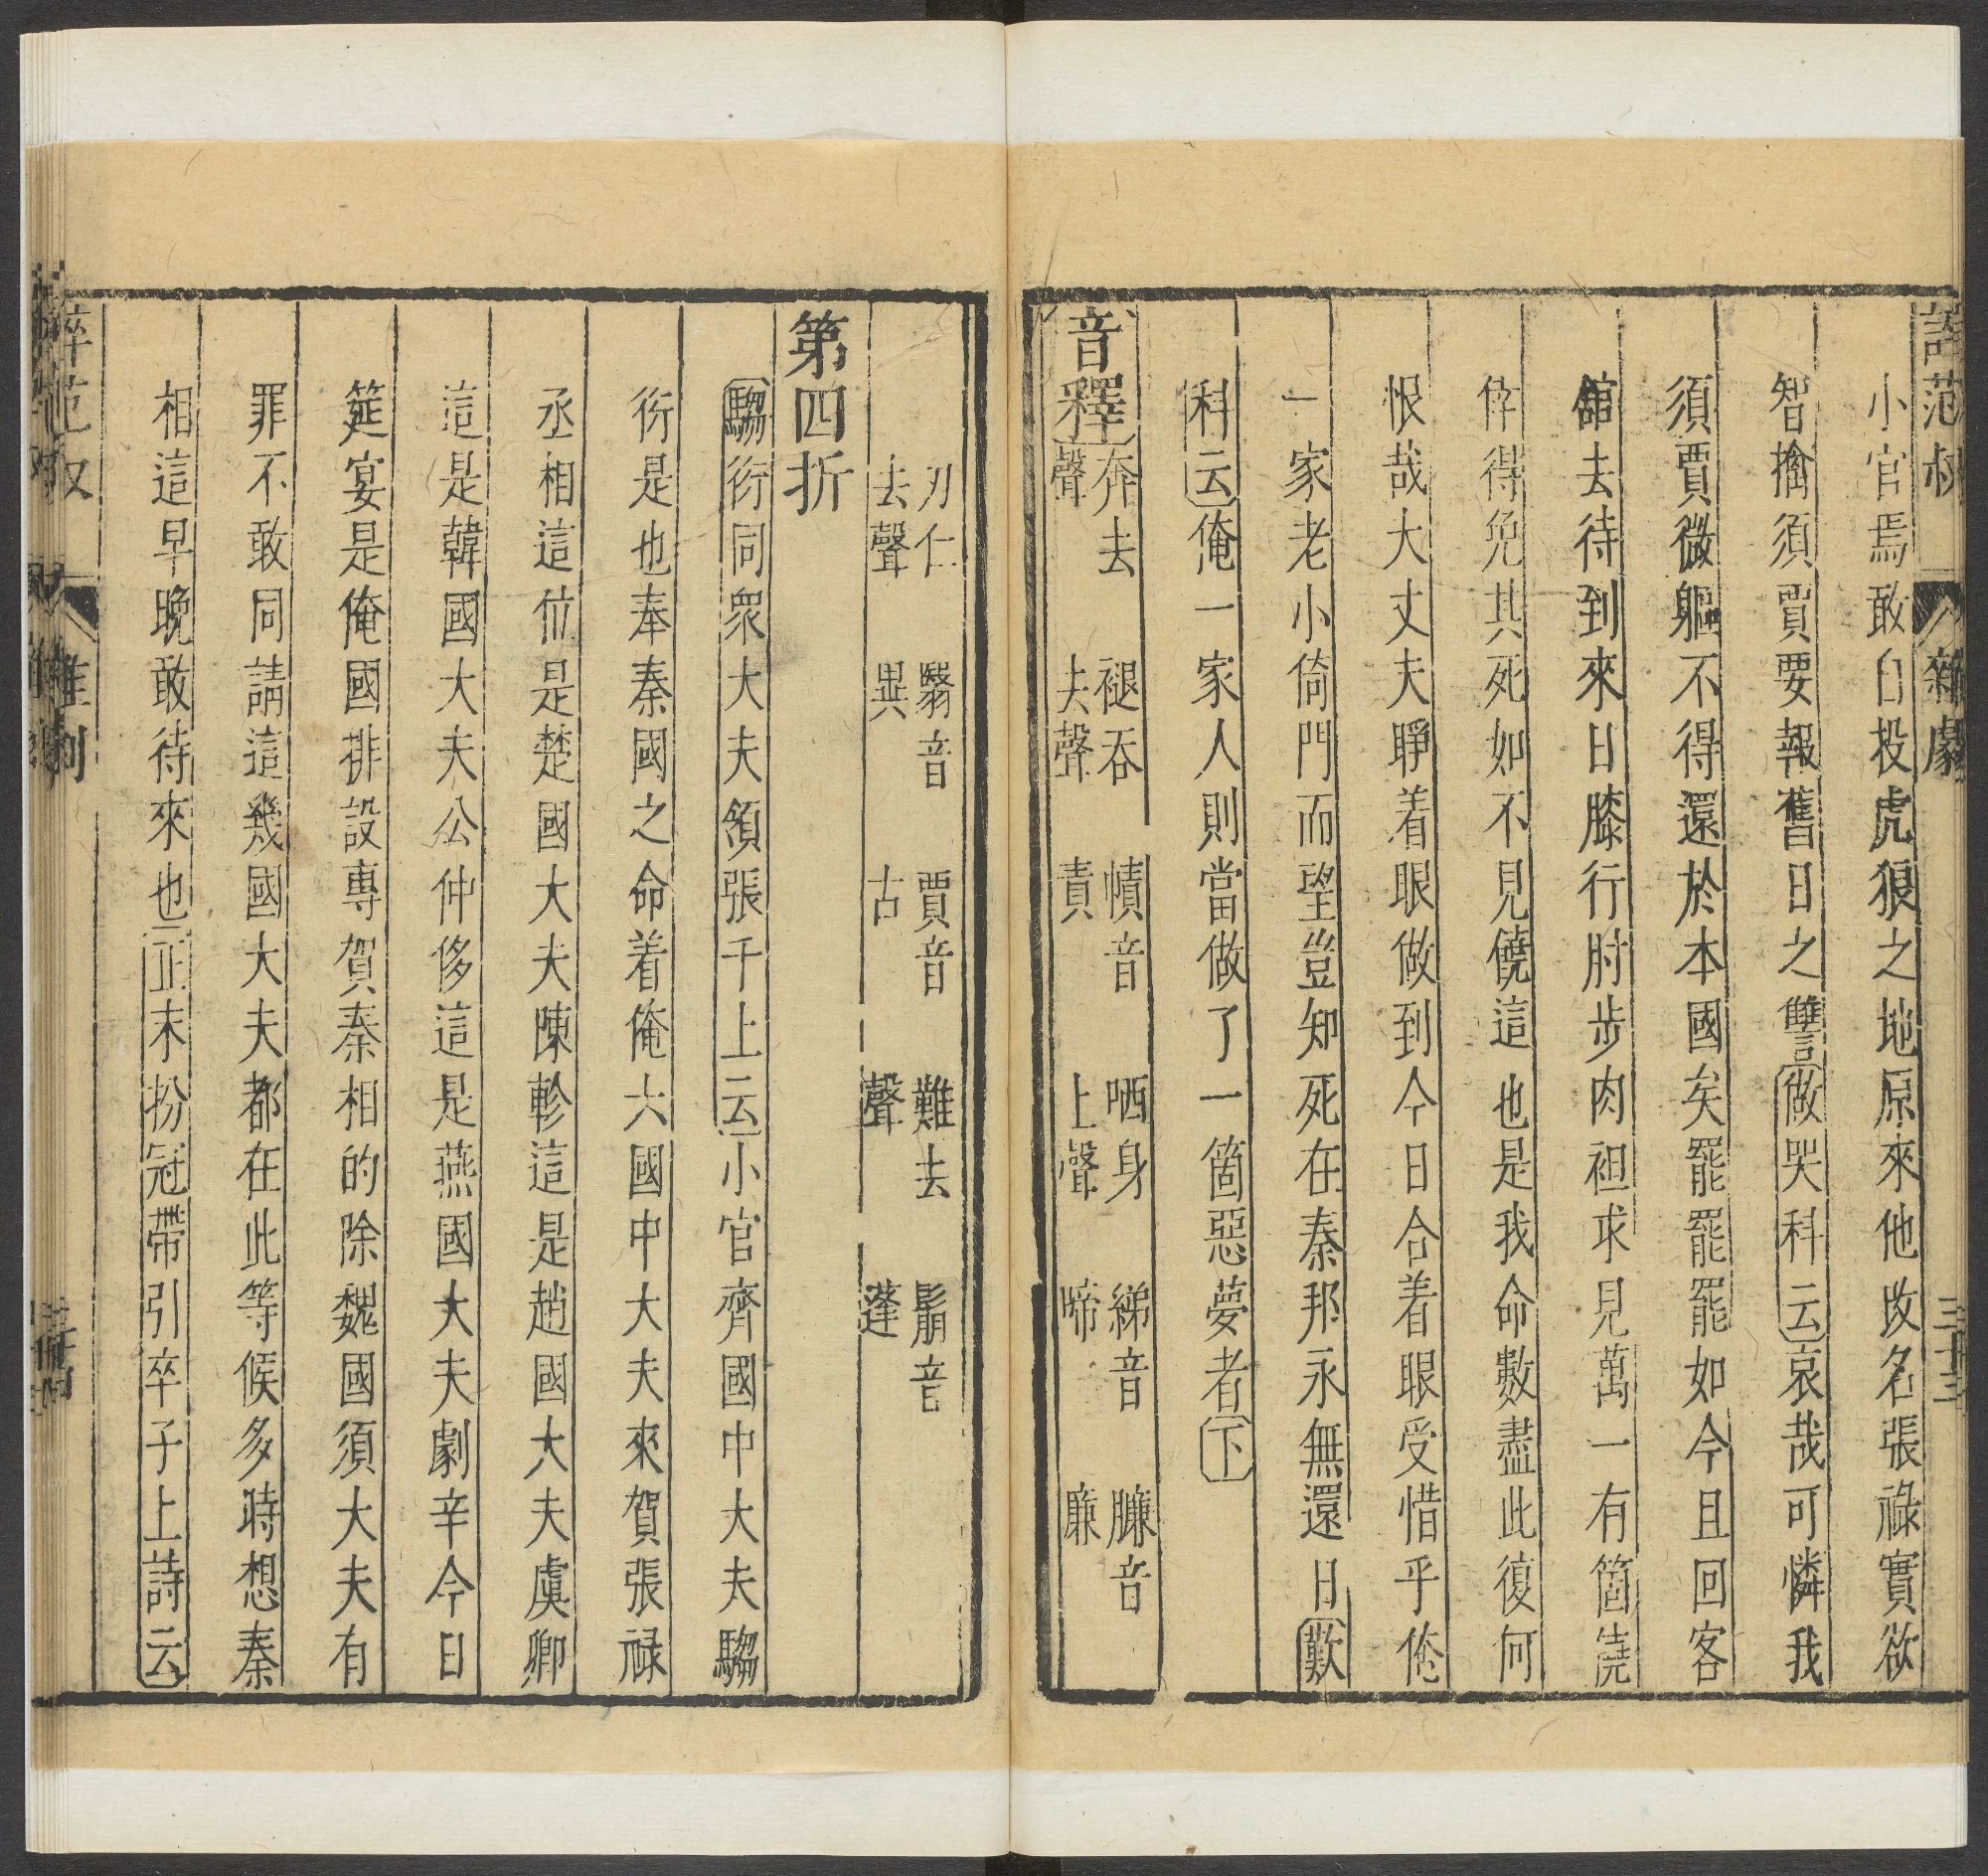 誶范叔 雜劇 三十三
小官焉敢自投虎狼之地原來他改名張祿實欲
智擒須賈要報舊日之讐做哭科云哀哉可憐我
須賈微軀不得還於本國矣罷罷罷如今且回客
舘去待到來日膝行肘步肉袒求見萬一有箇僥
倖得免其死如不見饒這也是我命數盡此復何
恨哉大丈夫睜着眼做到今日合着眼受惜乎俺
一家老小倚門而望豈知死在秦邦永無還日歎
科云俺一家人則當做了一箇惡夢者下
音釋 奔去聲 褪吞去聲 幘音責 哂身上聲 綈音啼 臁音廉
刃仁去聲 翳音異 賈音古 難去聲 鬅音蓬
第四折
騶衍同衆大夫領張千上云小官齊國中大夫騶
衍是也奉秦國之命着俺六國中大夫來賀張祿
丞相這位是楚國大夫陳軫這是趙國大夫虞卿
這是韓國大夫公仲侈這是燕國大夫劇辛今日
筵宴是俺國排設專賀秦相的除魏國須大夫有
罪不敢同請這幾國大夫都在此等候多時想秦
相這早晚敢待來也正末扮冠帶引卒子上詩云
誶范叔 雜劇